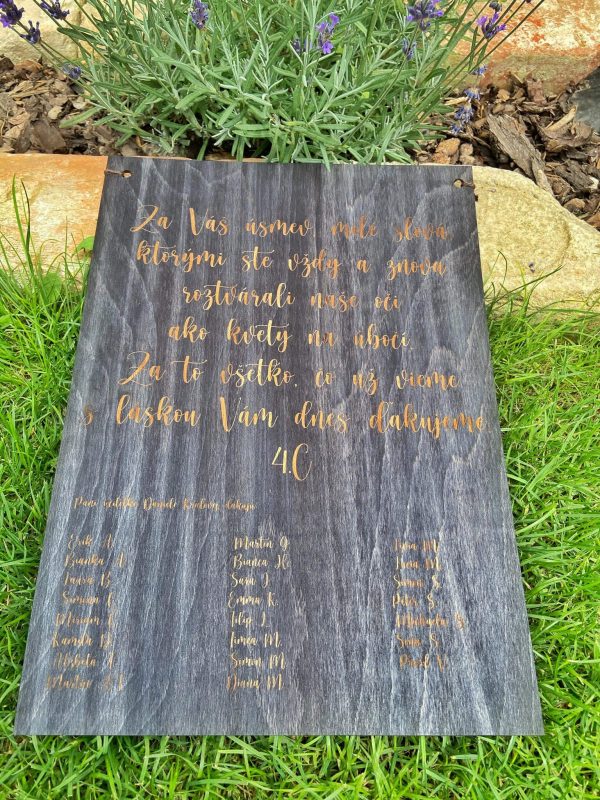 Za Váš úsmev, milé slová,
ktorými ste vždy a znova
roztvárali naše oči
ako kvety na úbočí.
Za to všetko, čo už vieme
s láskou Vám dnes ďakujeme
4.C
Pani učiteľke Daniele Kráľovej ďakujú
Erik A.
Bianka A.
Laura B.
Simona
Miriam
Kamila D.
Alžbeta
Martin
Martin G.
Bianca H.
Sára J.
Emma K.
Filip L.
Timea M.
Simon M.
Diana M.
M.
M.
Simon S.
Peter S.
Michaela S.
Sofia S.
Pavol V.